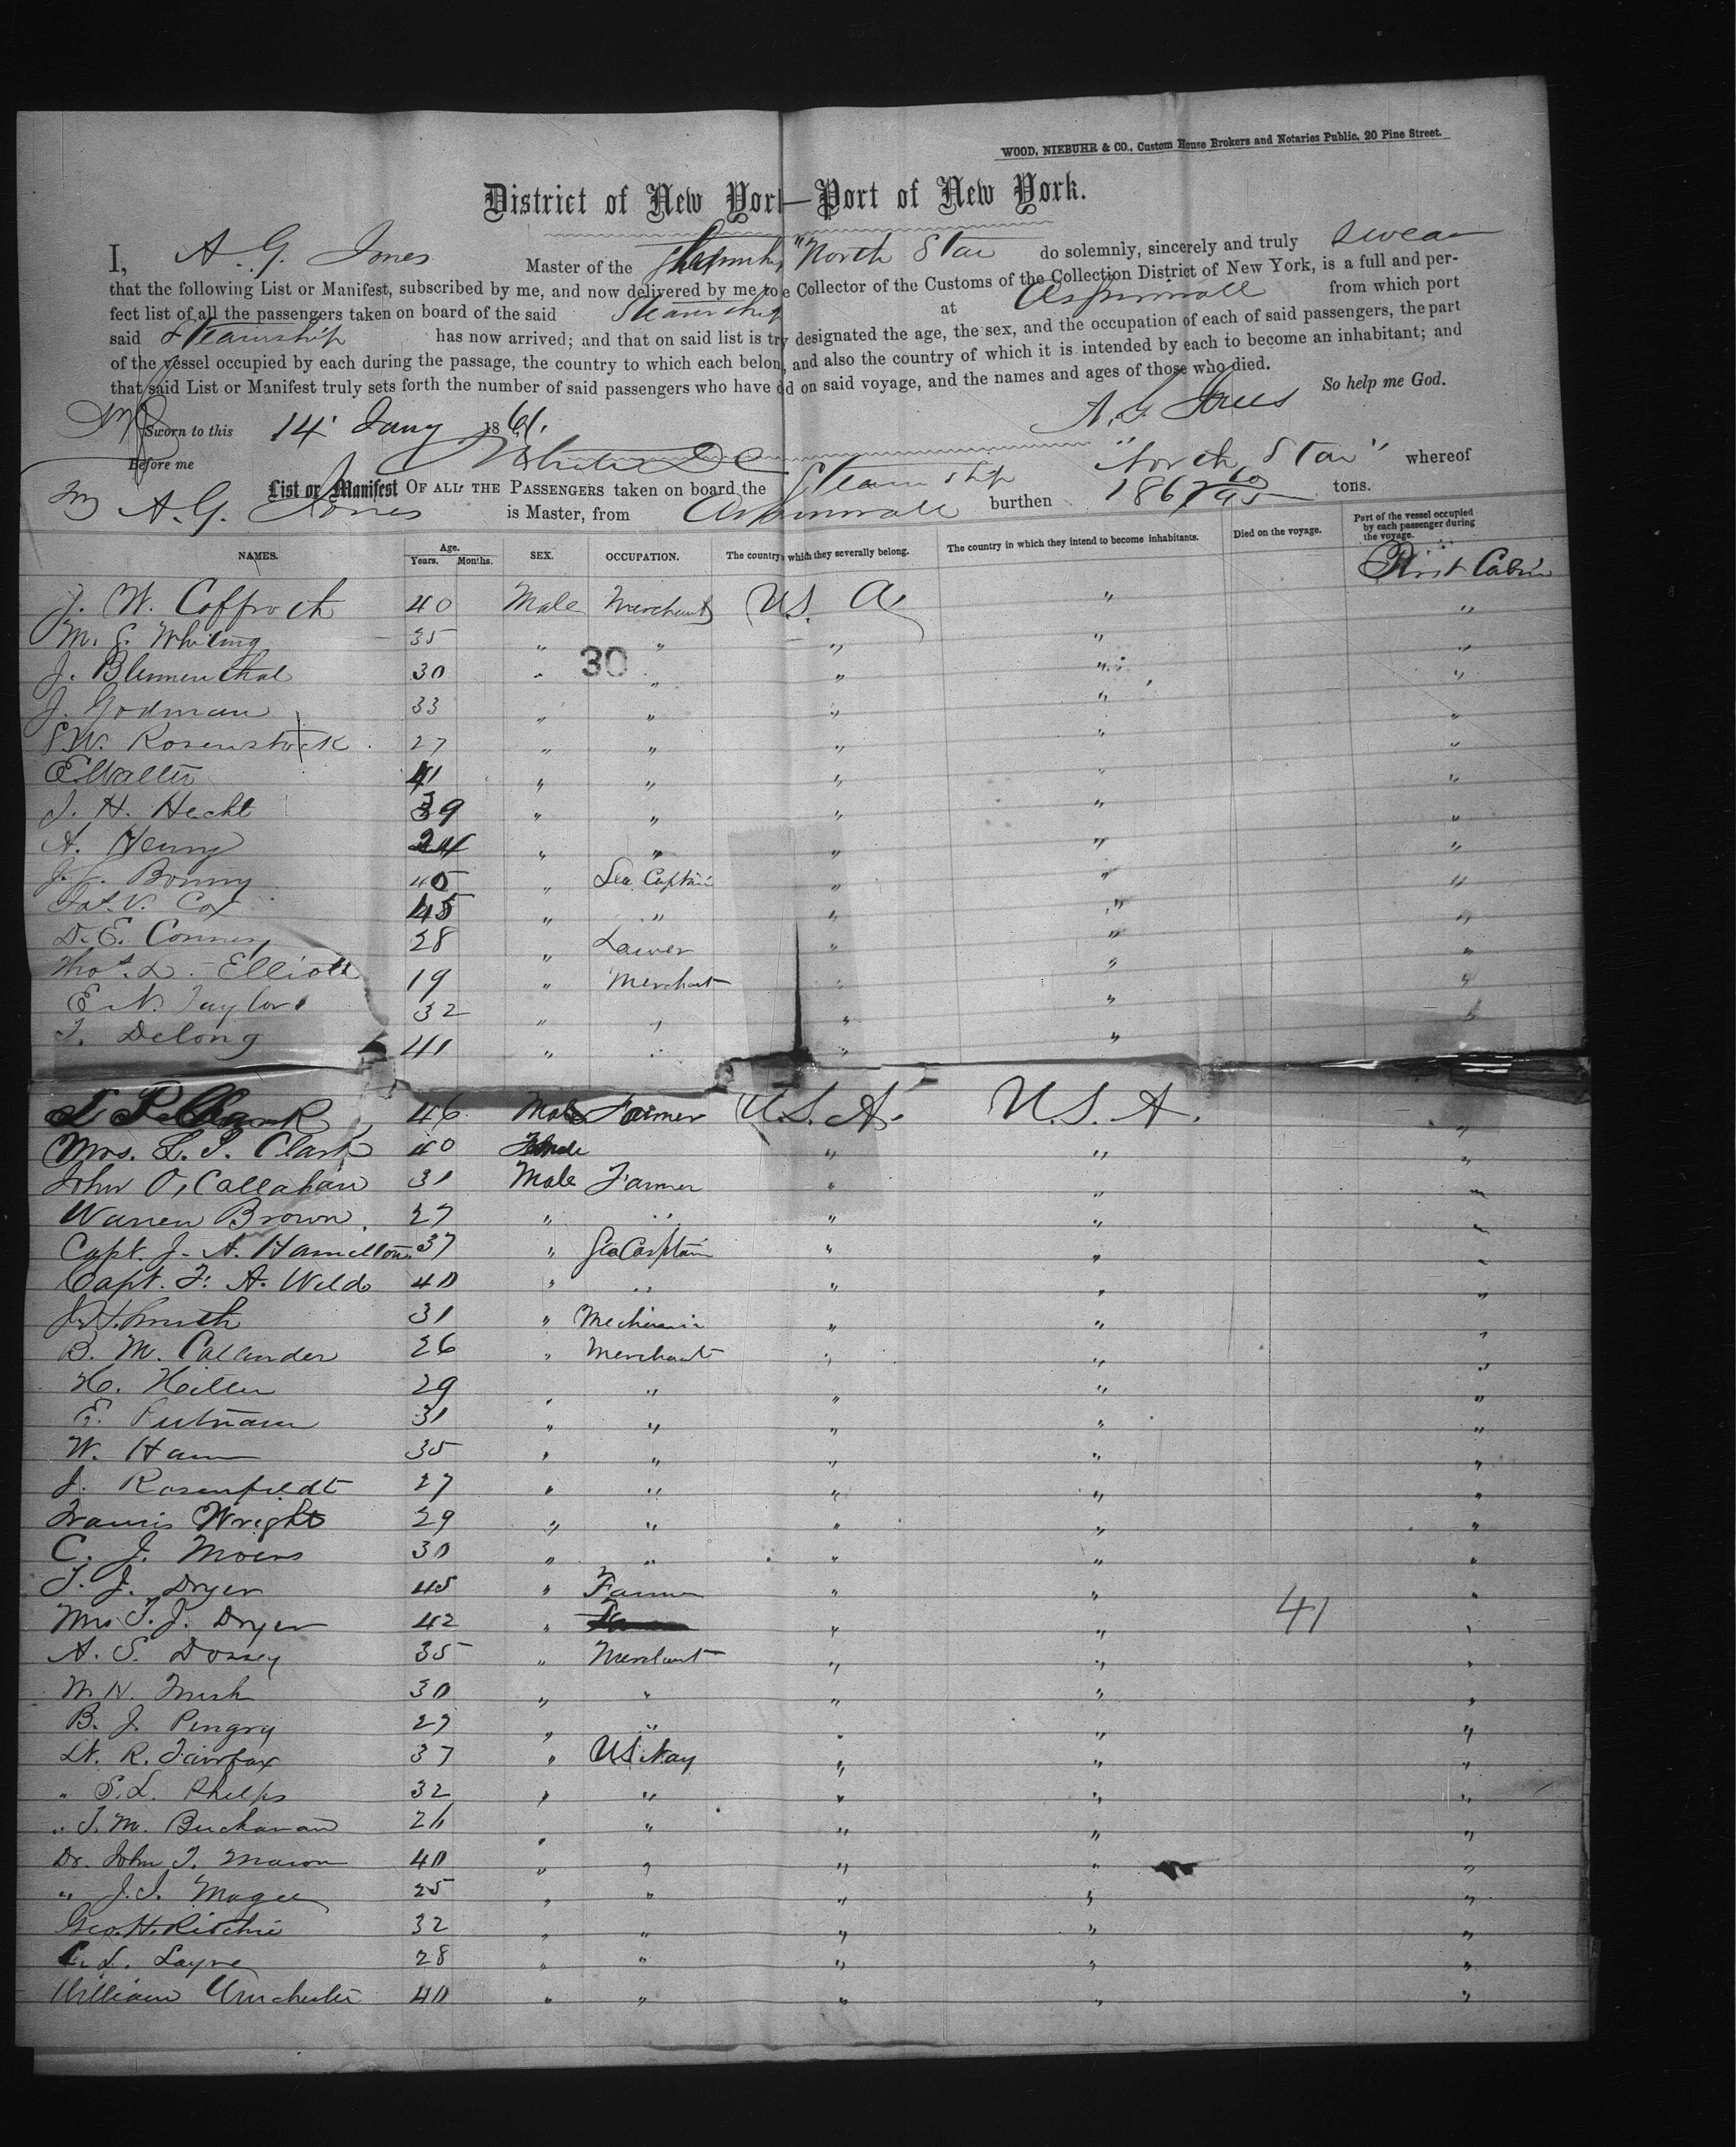 WOOD, NIEBUHR & CO., Custom House Brokers and Notaries Public, 20 Pine Street.
District of New York—Port of New York.
I, A. G. Jones Master of the Steamship "North Star do solemnly, sincerely and truly swear
that the following List or Manifest, subscribed by me, and now delivered by me to e Collector of the Customs of the Collection District of New York, is a full and per-
fect list of all the passengers taken on board of the said Steamship at Aspinwall from which port
said Steamship has now arrived; and that on said list is tr y designated the age, the sex, and the occupation of each of said passengers, the part
of the vessel occupied by each during the passage, the country to which each belon , and also the country of which it is intended by each to become an inhabitant; and
that said List or Manifest truly sets forth the number of said passengers who have d d on said voyage, and the names and ages of those who died. So help me God.
Sworn to this 14 Jany 1861. A. G. Jones
Before me
List or Manifest OF ALL THE PASSENGERS taken on board the Steam Ship "North Star" whereof
A. G. Jones is Master, from Aspinwall burthen 1867 10/95 tons.
NAMES. Age. Years. Months. SEX. OCCUPATION. The country which they severally belong. The country in which they intend to become inhabitants. Died on the voyage. Part of the vessel occupied by each passenger during the voyage.
First Cabin
J. W. Coffroth 40 Male Merchant U.S. A. " "
M. S. Whiting 35 " " " " "
30
J. Blumenthal 30 " " " " "
J. Godman 33 " " " " "
S. W. Rosenstock 27 " " " " "
E Walter 41 " " " " "
J. H. Hecht 39 " " " " "
A. Henry 24 " " " " "
Bonny 45 " Sea Captain " " "
Jas. V. Cox 45 " " " " "
D. E. Conner 28 " Lawer " " "
Thos. L. Elliott 19 " Merchant " " "
E. N. Taylor 32 " " " " "
T. Delong 41 " " " " "
Clark 46 Male Farmer U.S.A. U.S.A. "
Mrs. L. P. Clark 40 Female " " "
John O, Callahan 31 Male Farmer " " "
Warren Brown. 27 " " " " "
Capt. J. A. Hamilton 37 " Sea Captain " " "
Capt. F. A. Wild 40 " " " " "
J. H. Smith 31 " Mechanic " " "
B. M. Callander 26 " Merchant " " "
H. Hiller 29 " " " " "
E. Putnam 31 " " " " "
W. Ham 35 " " " " "
J. Rosenfeldt 27 " " " " "
Francis Wright 29 " " " " "
C. J. Moers 30 " " " " "
T. J. Dryer 45 " Farmer " " "
Mrs T. J. Dryer 42 " " " 41 "
A. S. Dossey 35 " Merchant " " "
W. N. 30 " " " " "
B. J. Pengry 27 " " " " "
Lt. R. Fairfax 37 " US Nay " " "
" S. L. Phelps 32 " " " " "
" T. M. Buchanan 26 " " " " "
Dr. John T. Mason 40 " " " " "
" J. J. Magee 25 " " " " "
Geo. H. Ritchie 32 " " " " "
C. L. Layne 28 " " " " "
William Winchester 40 " " " " "